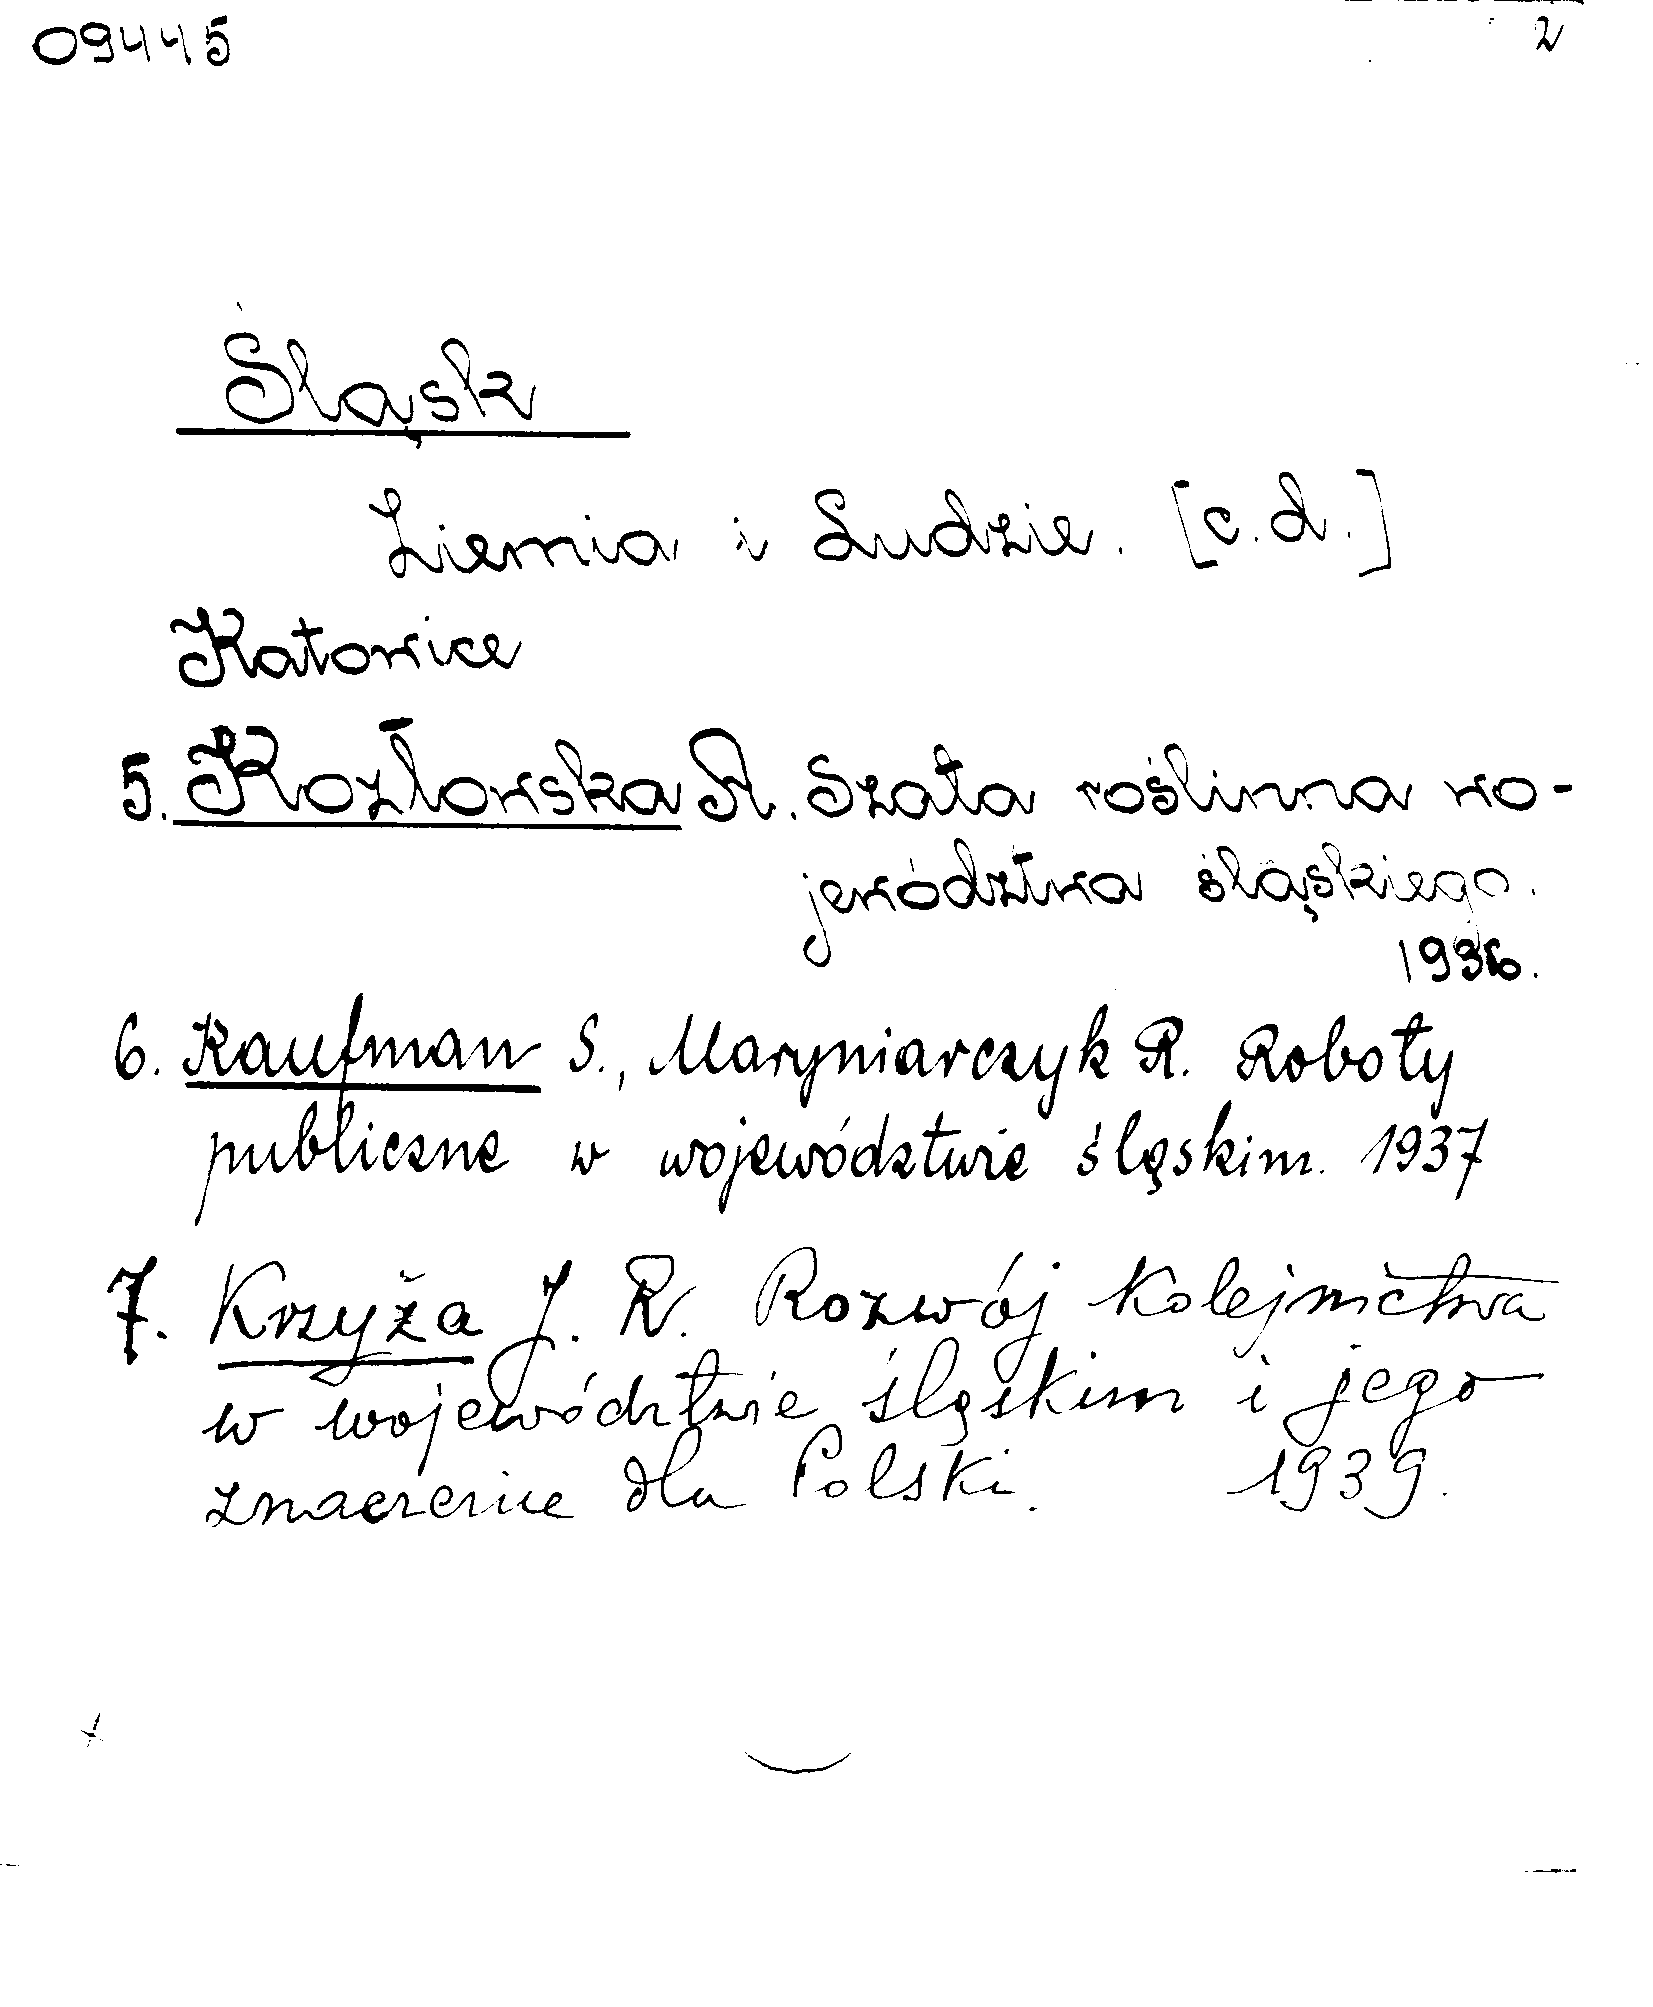 09445 2
Śląsk
Ziemia i Ludzie. [c.d.]
Katowice
5. Kozłowska A. Szata roślinna wo-
jewództwa śląskiego.
1936.
6. Kaufman S., Maryniarczyk R. Roboty
publiczne w województwie śląskim. 1937
7. Krzyża J. R. Rozwój kolejnictwa
w województwie śląskim i jego
znaczenie dla Polski. 1939.